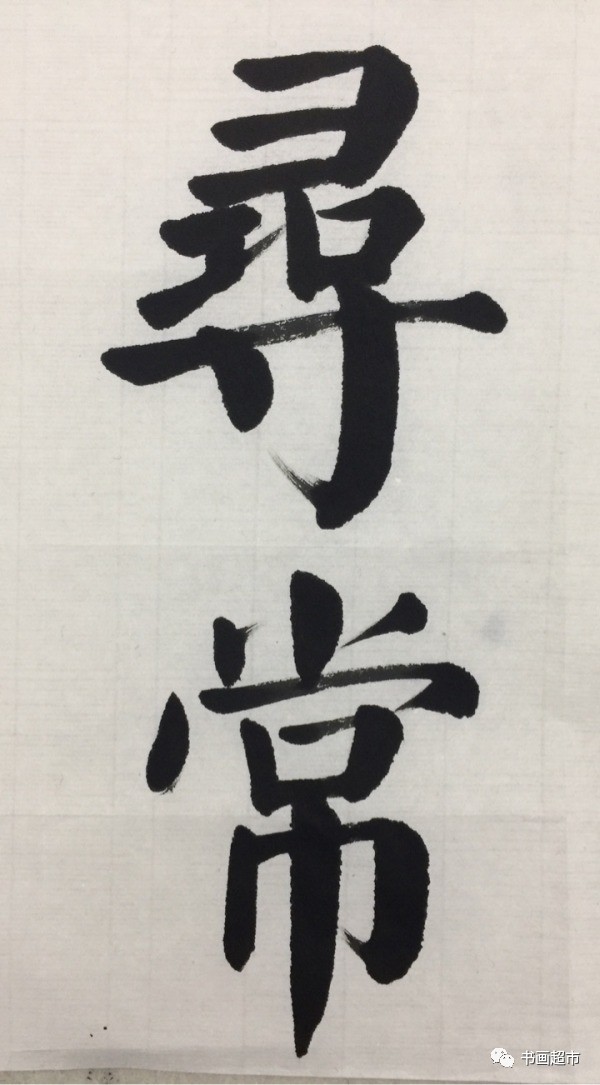 尋常
书画超市